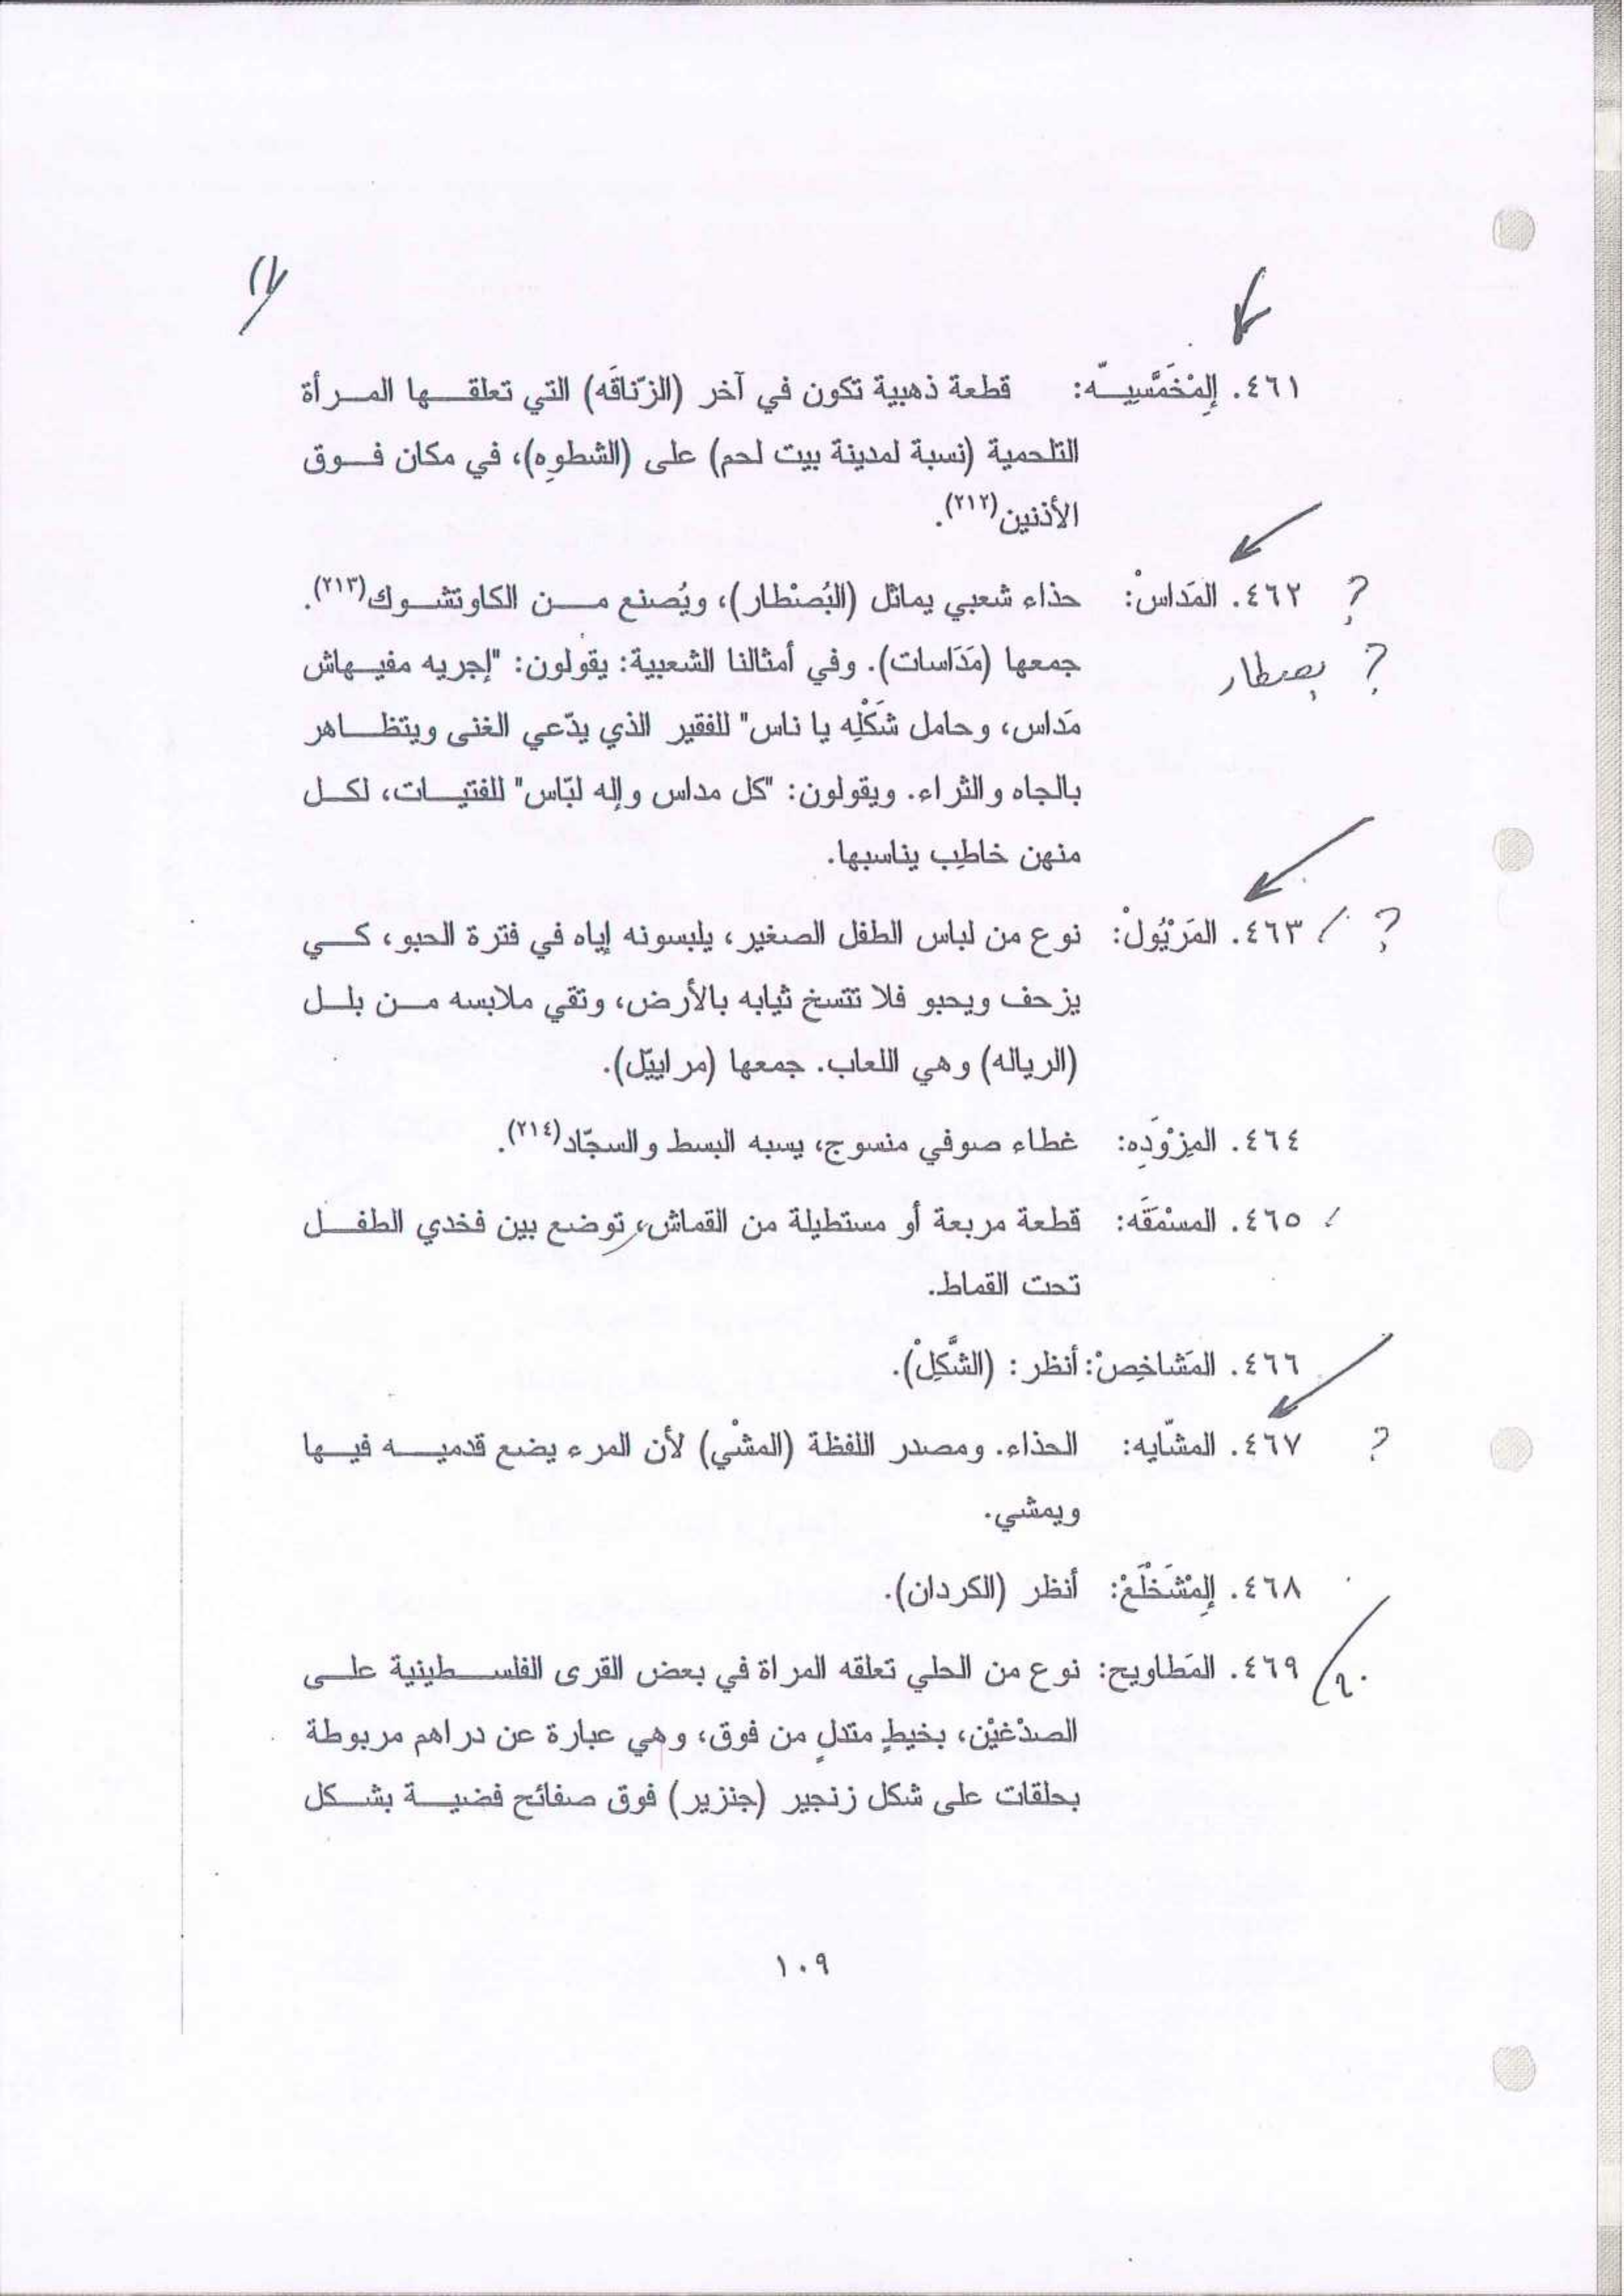 ٤٦١. إِلمْخَمَّسِيّه: قطعة ذهبية تكون في آخر (الزّناقَه) التي تعلقها المرأة
التلحمية (نسبة لمدينة بيت لحم) على (الشطوِه)، في مكان فوق
الأذنين(٢١٢).
؟ ٤٦٢. المَداسْ: حذاء شعبي يماثل (البُصْطار)، ويُصنع من الكاوتشوك(٢١٣).
؟ بصطار جمعها (مَدَاسات). وفي أمثالنا الشعبية: يقولون: "إجريه مفيهاش
مَداس، وحامل شَكْلِه يا ناس" للفقير الذي يدّعي الغنى ويتظاهر
بالجاه والثراء. ويقولون: "كل مداس وإله لبّاس" للفتيات، لكل
منهن خاطِب يناسبها.
؟ ٤٦٣. المَرْيُولْ: نوع من لباس الطفل الصغير، يلبسونه إياه في فترة الحبو، كي
يزحف ويحبو فلا تتسخ ثيابه بالأرض، وتقي ملابسه من بلل
(الرياله) وهي اللعاب. جمعها (مراييّل).
٤٦٤. المِزْوَدِه: غطاء صوفي منسوج، يسبه البسط والسجّاد(٢١٤).
٤٦٥. المسْمَقَه: قطعة مربعة أو مستطيلة من القماش، توضع بين فخدي الطفل
تحت القماط.
٤٦٦. المَشاخِصْ: أنظر: (الشَّكِلْ).
؟ ٤٦٧. المشّايه: الحذاء. ومصدر اللفظة (المشْي) لأن المرء يضع قدميه فيها
ويمشي.
٤٦٨. إِلمْشَخْلَعْ: أنظر (الكردان).
٤٦٩. المَطاويح: نوع من الحلي تعلقه المراة في بعض القرى الفلسطينية على
الصدْغيْن، بخيطٍ متدلٍ من فوق، وهي عبارة عن دراهم مربوطة
بحلقات على شكل زنجير (جنزير) فوق صفائح فضية بشكل
١٠٩